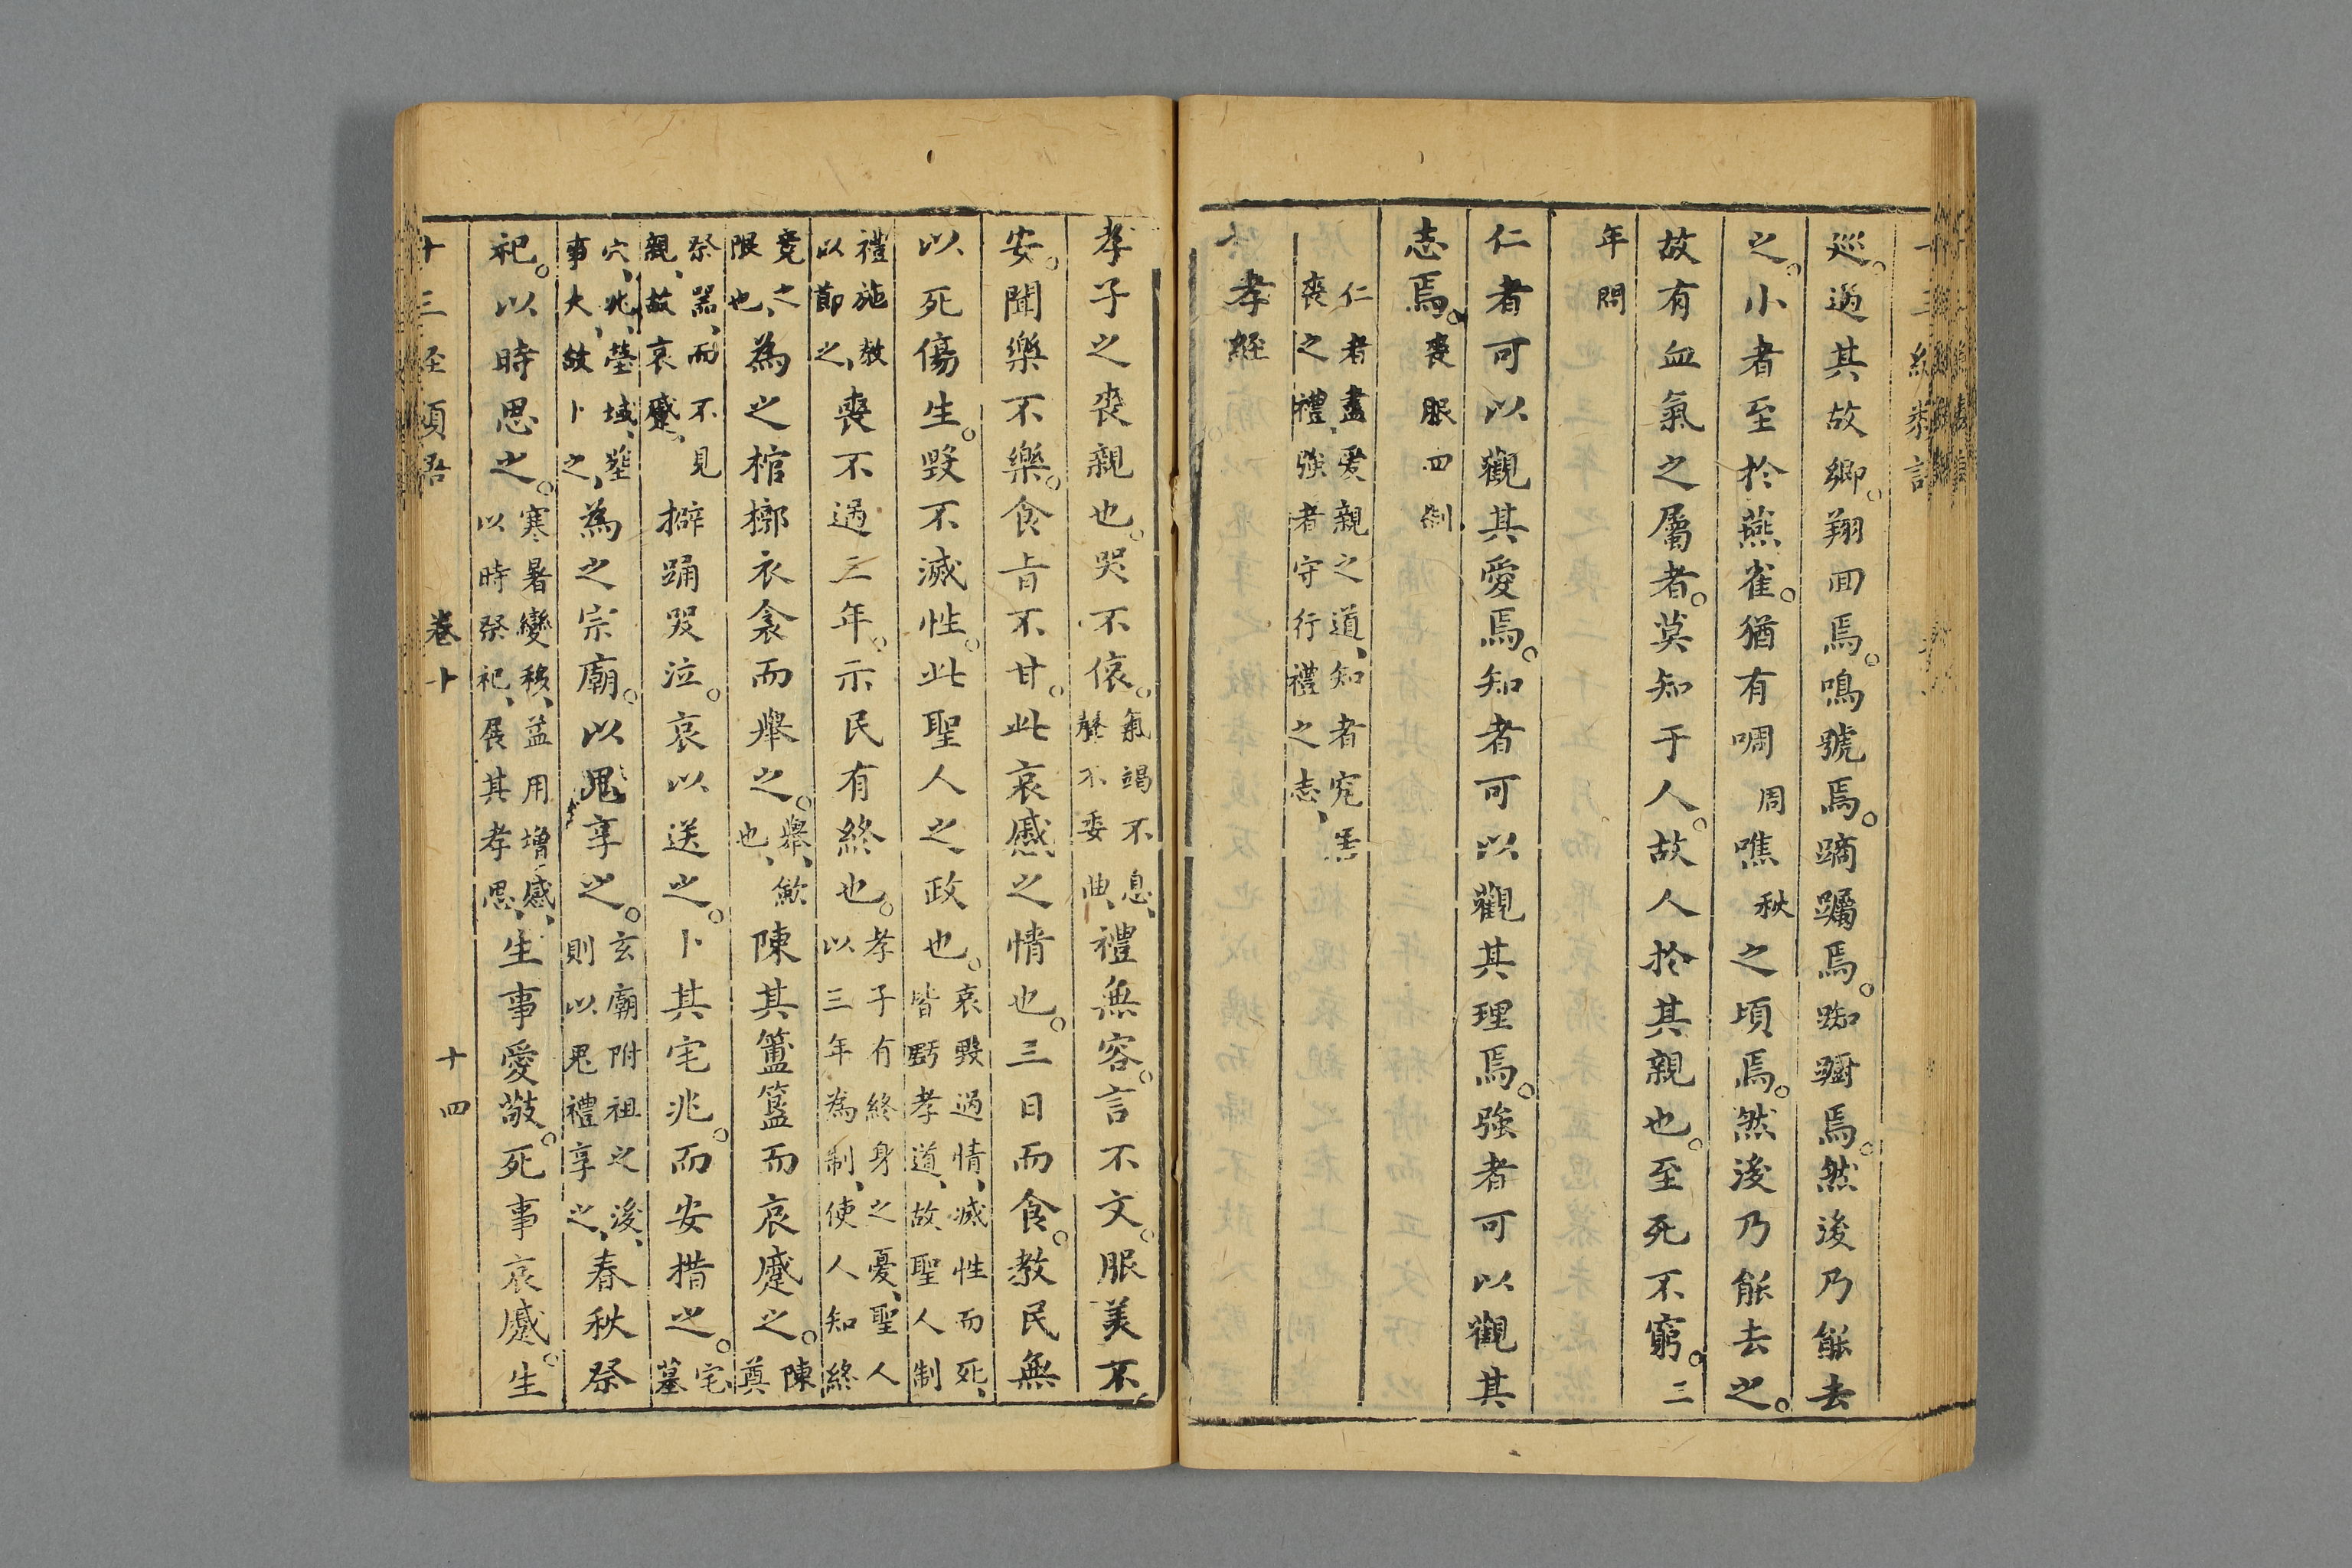 巡。過其故鄉。翔回焉。鳴號焉。蹢躅焉。踟躕焉。然後乃能去
之。小者至於燕雀。猶有啁周噍秋之頃焉。然後乃能去之。
故有血氣之屬者。莫知于人。故人於其親也。至死不窮。三
年問
仁者可以觀其愛焉。知者可以觀其理焉。強者可以觀其
志焉。喪服四制
仁者盡愛親之道、知者究
喪之禮、強者守行禮之志、
孝經
孝子之喪親也。哭不偯。氣竭不息、
聲不委曲、禮無容。言不文。服美不
安。聞樂不樂。食旨不甘。此哀慼之情也。三日而食。教民無
以死傷生。毀不滅性。此聖人之政也。哀毀過情、滅性而死、
皆虧孝道、故聖人制
禮施教
以節之、喪不過三年。示民有終也。孝子有終身之憂、聖人
以三年為制、使人知終
竟之
限也、為之棺槨衣衾而舉之。舉、歛
也、陳其簠簋而哀慼之。陳
奠
祭器、而不見
親、故哀慼、擗踊哭泣。哀以送之。卜其宅兆。而安措之。宅
墓
穴、兆、塋域、塟
事大、故卜之、為之宗廟。以鬼享之。玄廟附祖之後、
則以鬼禮享之、春秋祭
祀。以時思之。寒暑變移、益用增感、
以時祭祀、展其孝思、生事愛敬。死事哀慼。生
十三経須吾 卷十 十四